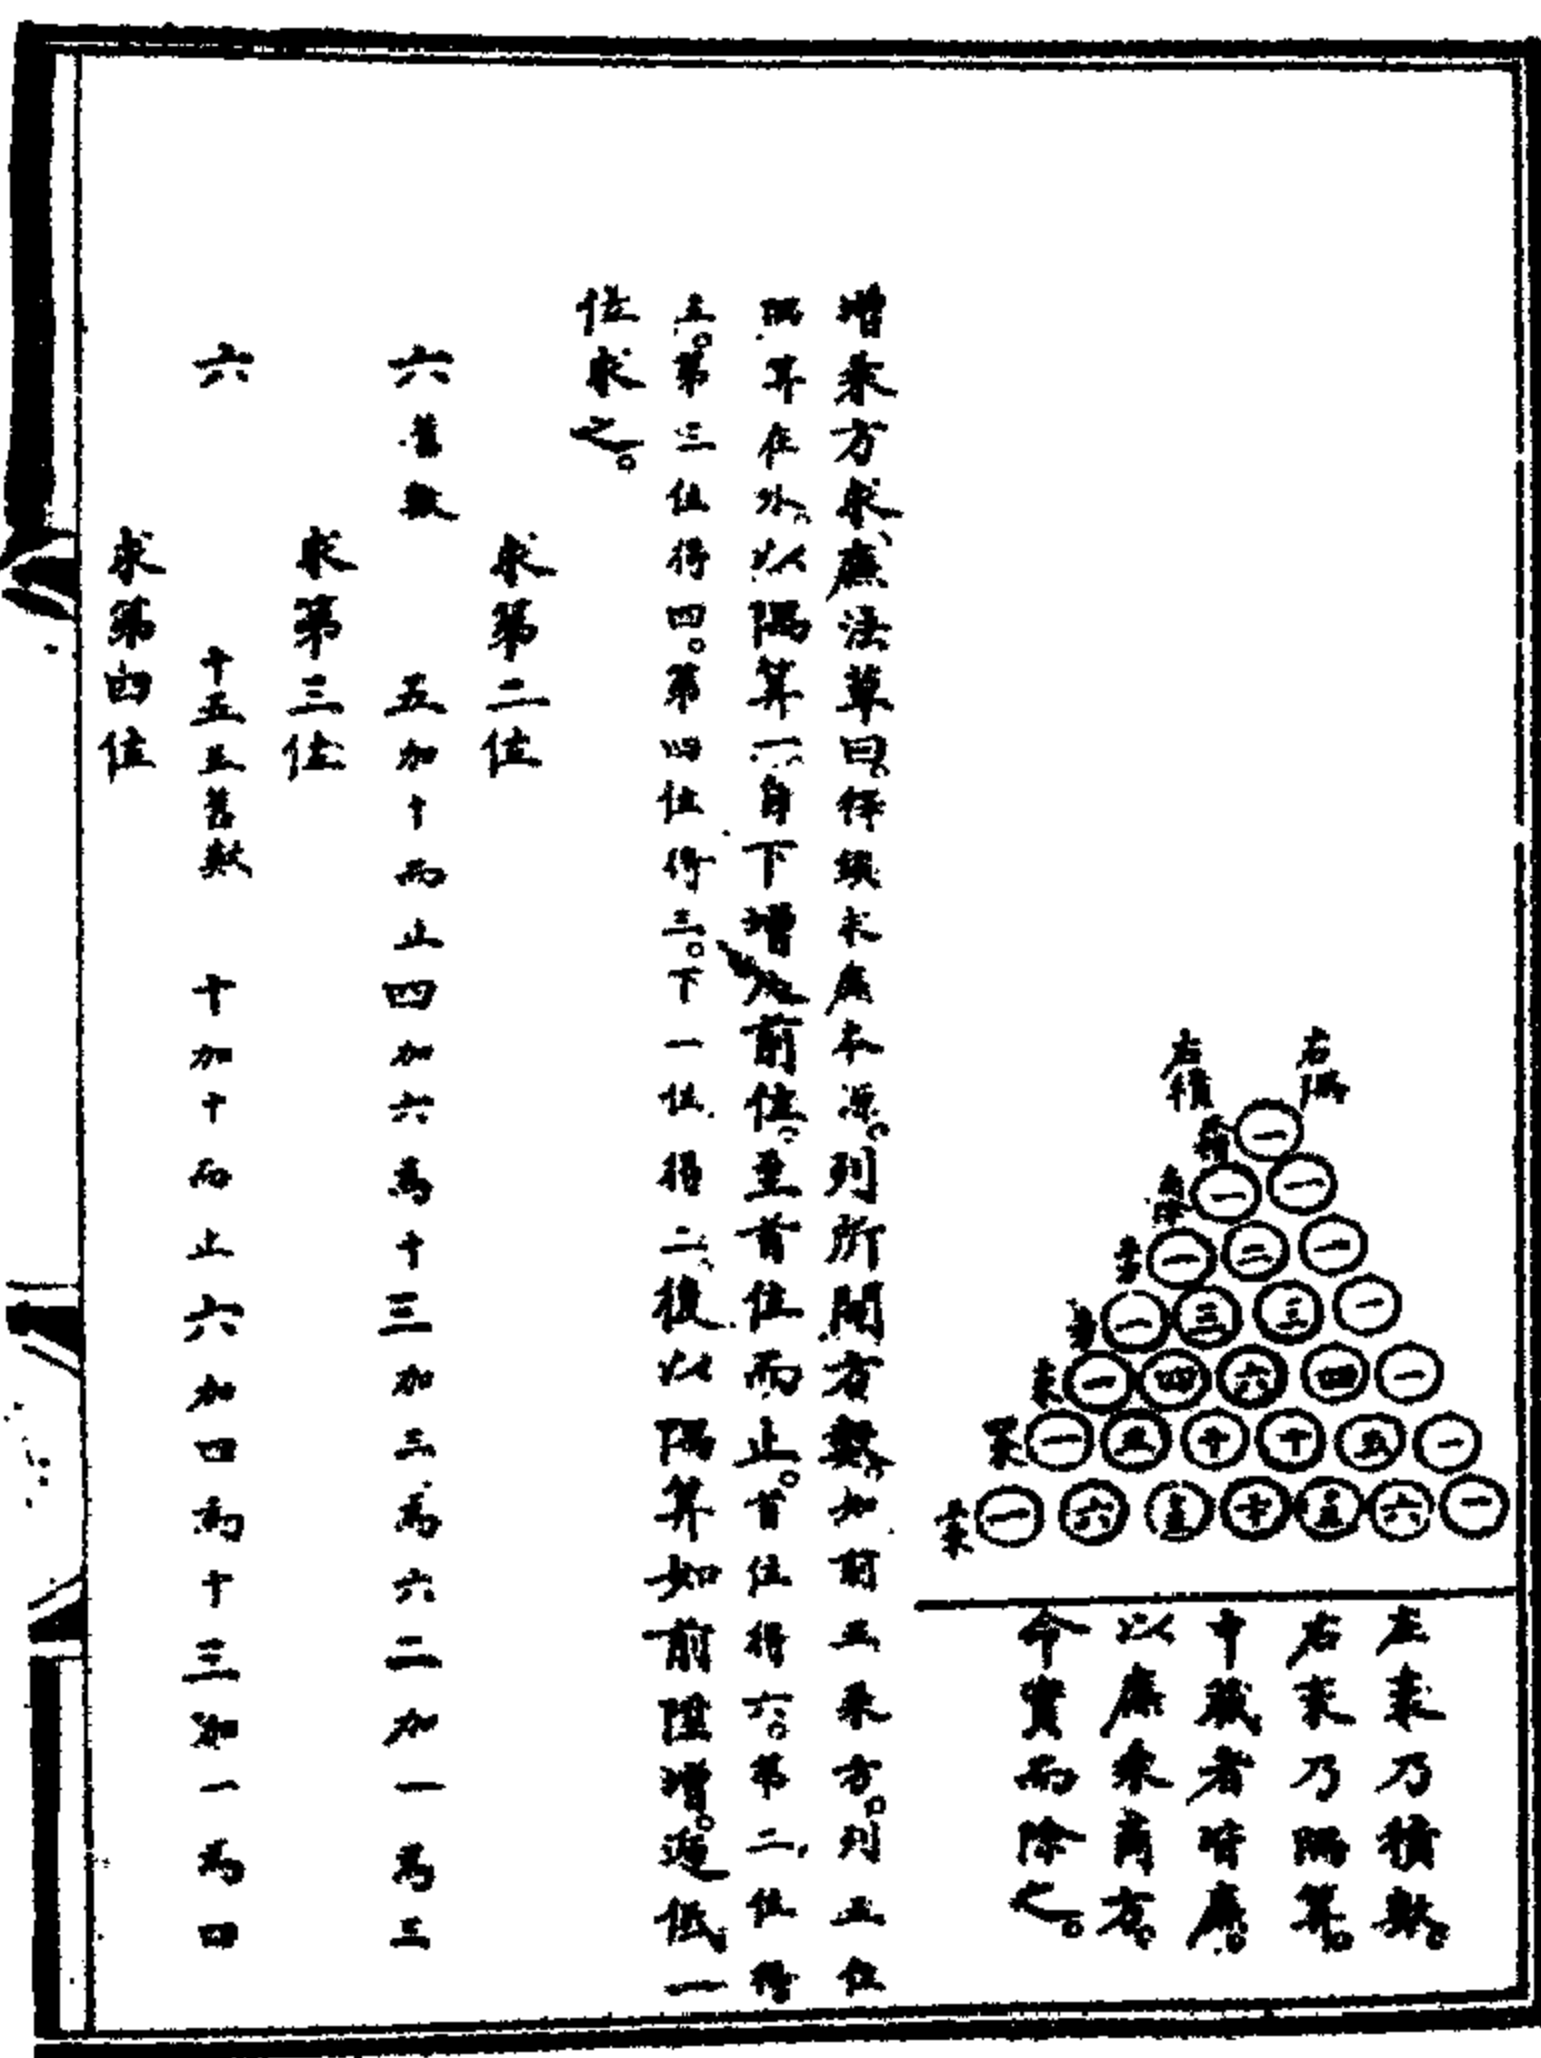 右積
右隅
一
一 一
一 二 一
一 三 三 一
一 四 六 四 一
一 五 十 十 五 一
一 六 十五 二十 十五 六 一
左袤乃積數。
右袤乃隅算。
中藏者皆廉。
以廉乘商方。
命實而除之。
增乘方求廉法草曰。釋鎖求廉本源。列所開方數。如前五乘方。列五位
隅算在外。以隅算一自下增入前位。至首位而止。首位得六。第二位得
五。第三位得四。第四位得三。下一位得二。復以隅算如前陞增。遞低一
位求之。
求第二位
六舊數 五加十而止 四加六爲十 三加三爲六 二加一爲三
求第三位
六 十五並舊數 十加十而止 六加四爲十 三加一爲四
求第四位